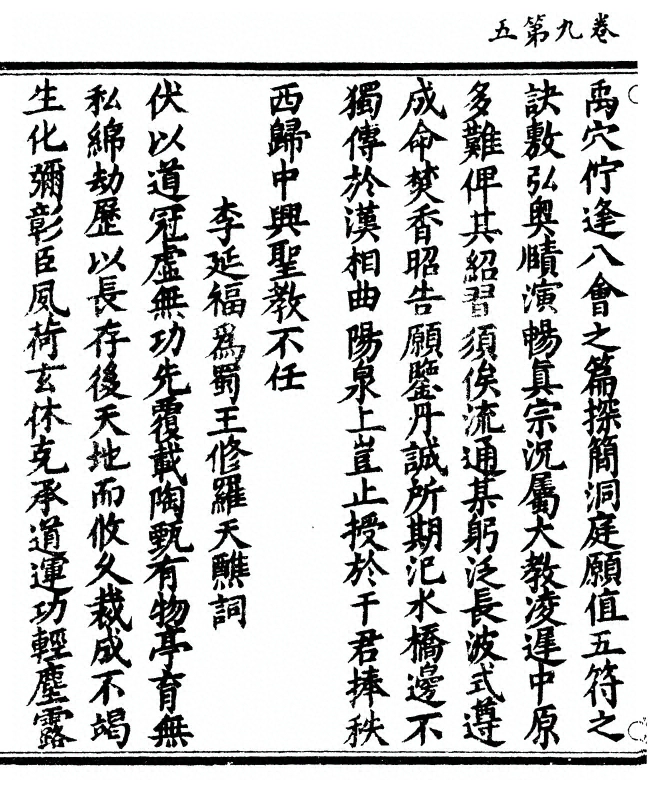 卷九第五
禹穴佇逢八會之篇探簡洞庭願值五符之
訣敷弘奧賾演暢真宗況屬大教凌遲中原
多難俾其紹習須俟流通某躬泛長波式遵
成命焚香昭告願鑒丹誠所期汜水橋邊不
獨傳於漢相曲陽泉上豈止授於干君捧秩
西歸中興聖教不任
李延福爲蜀王修羅天醮詞
伏以道冠虛無功先覆載陶甄有物亭育無
私綿劫歷以長存後天地而攸久裁成不竭
生化彌彰臣夙荷玄休克承道運功輕塵露